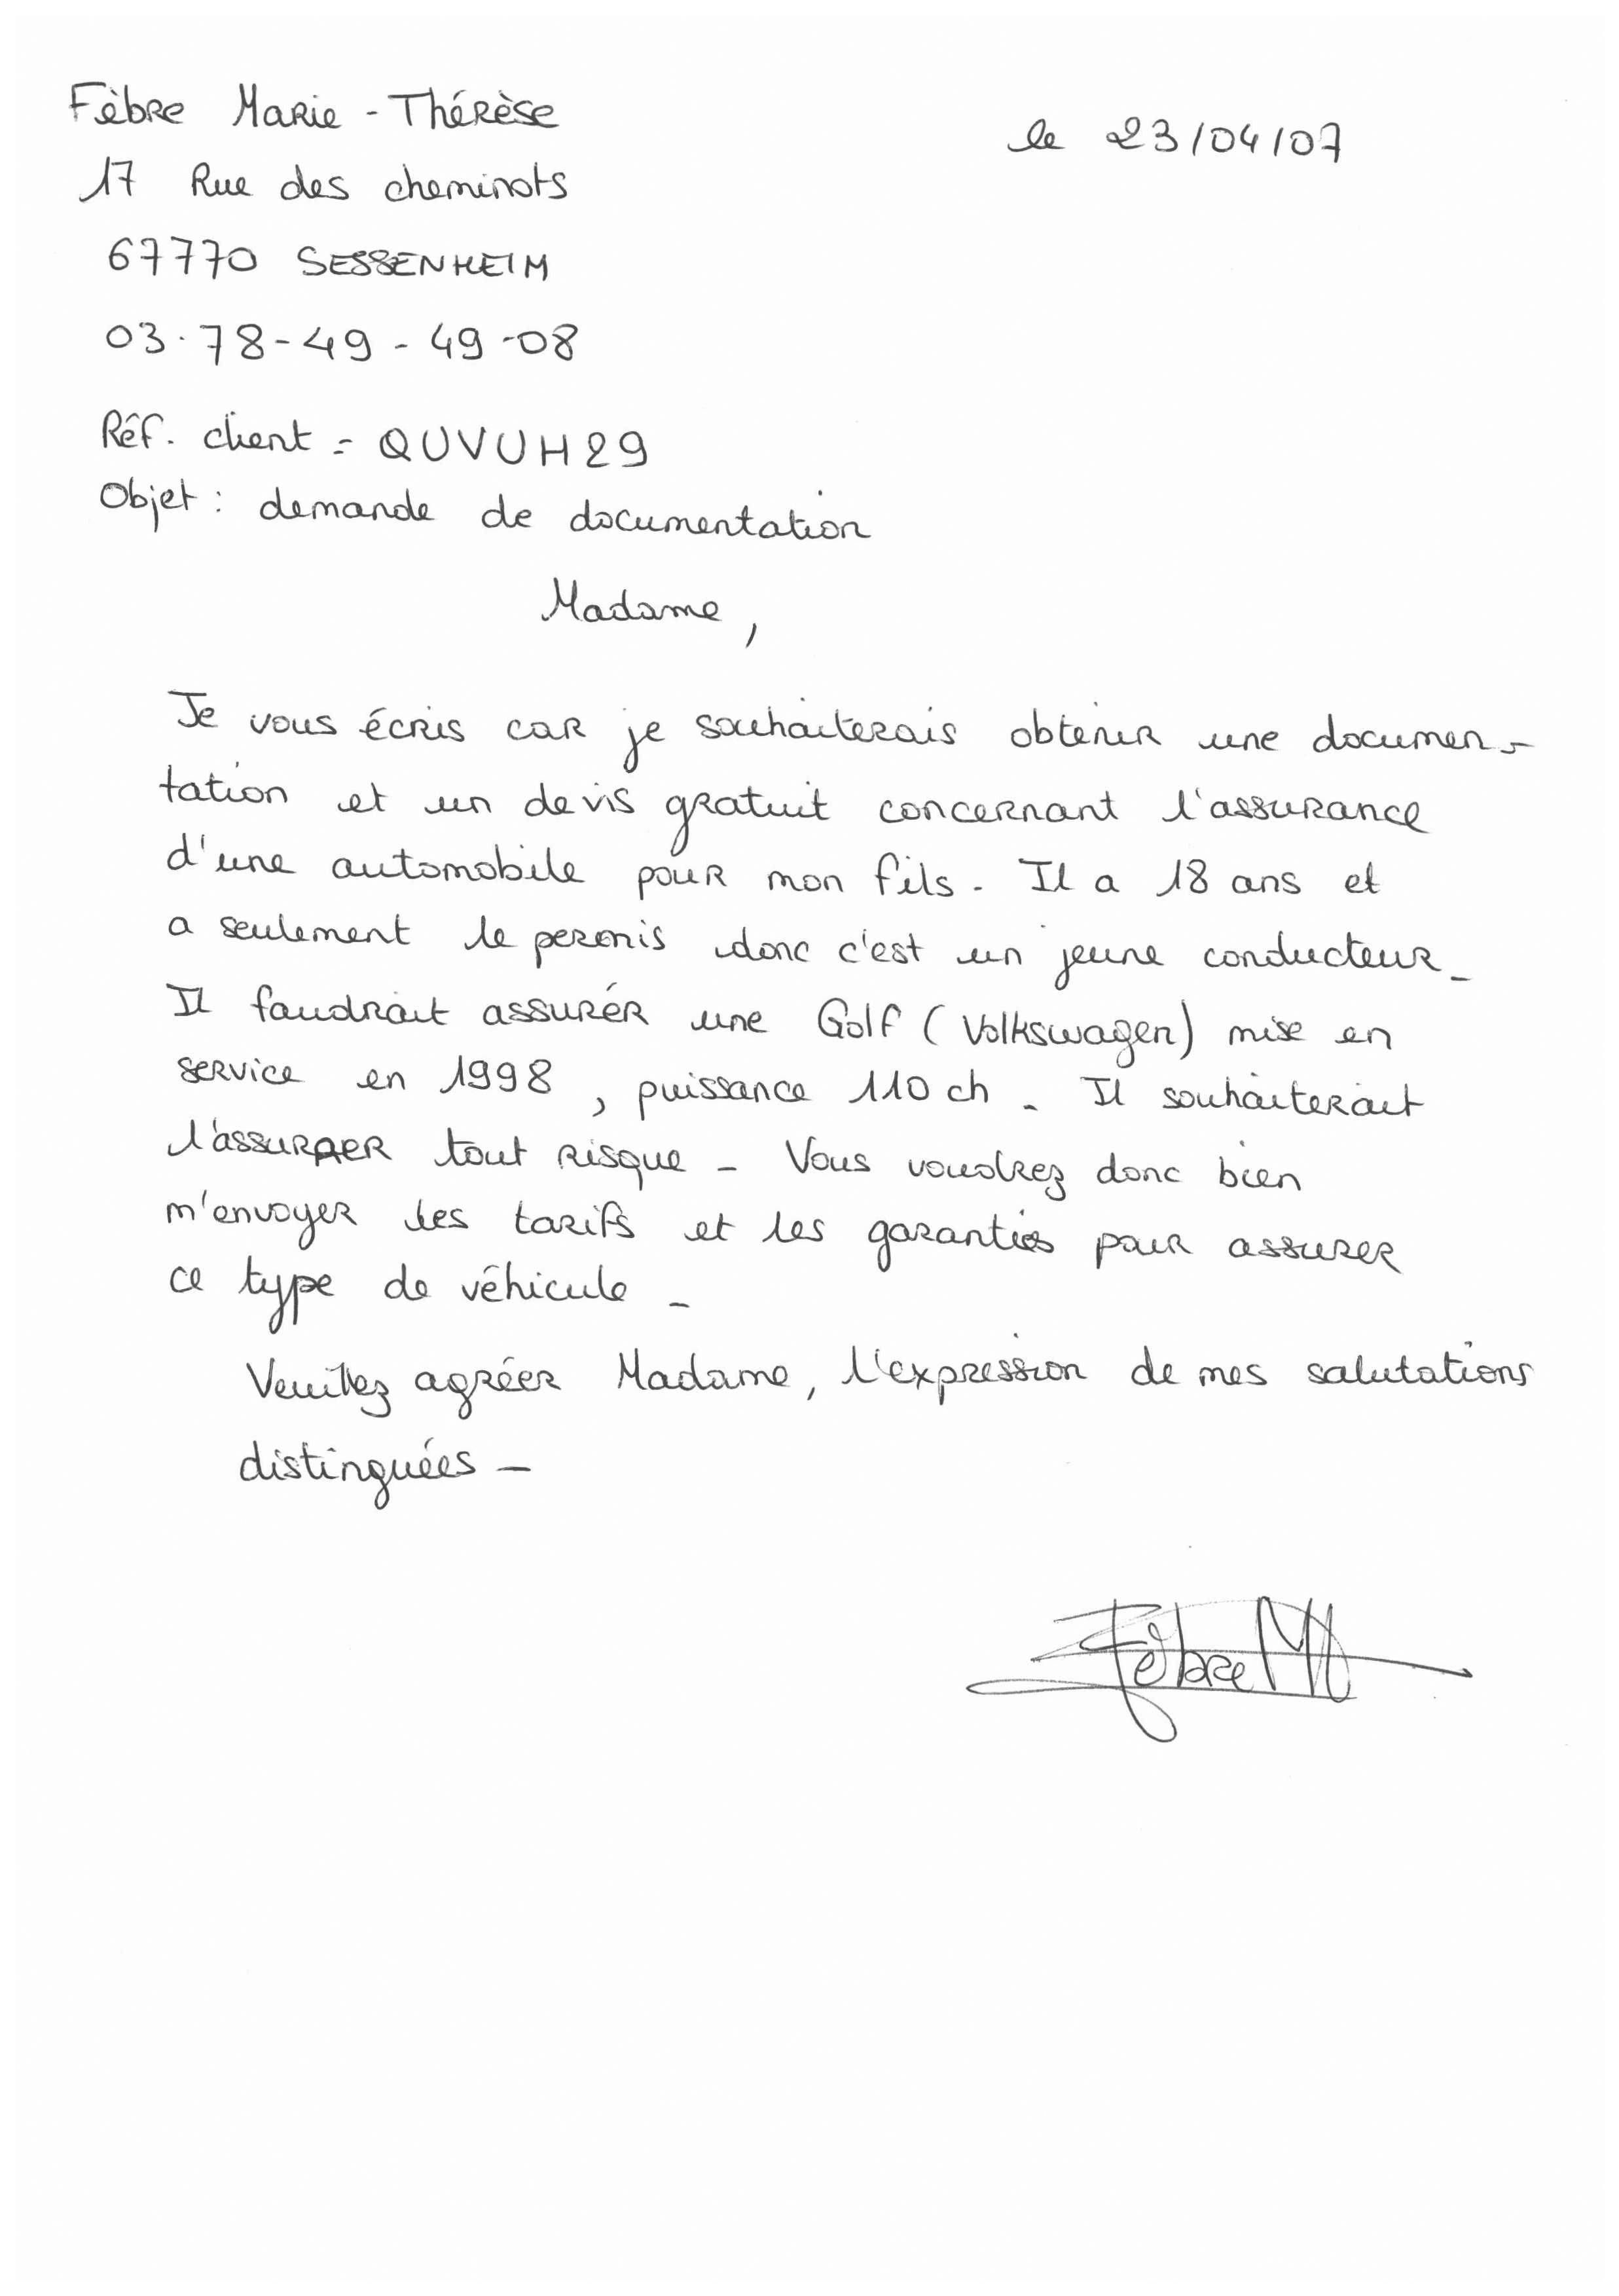 Fèbre Marie-Thérèse
le 23/04/07
17 Rue des cheminots
67770 SESSENHEIM
03.78-49-49-08
Réf. client = QUVUH29
Objet : demande de documentation
Madame,
Je vous écris car je souhaiterais obtenir une documen-
tation et un devis gratuit concernant l'assurance
d'une automobile pour mon fils. Il a 18 ans et
a seulement le permis donc c'est un jeune conducteur.
Il faudrait assurér une Golf (Volkswagen) mise en
service en 1998, puissance 110 ch. Il souhaiterait
l'assurer tout risque - Vous voudrez donc bien
m'envoyer les tarifs et les garanties pour assurer
ce type de véhicule -
Veuillez agréer Madame, l'expression de mes salutations
distinguées -
Fèbre M